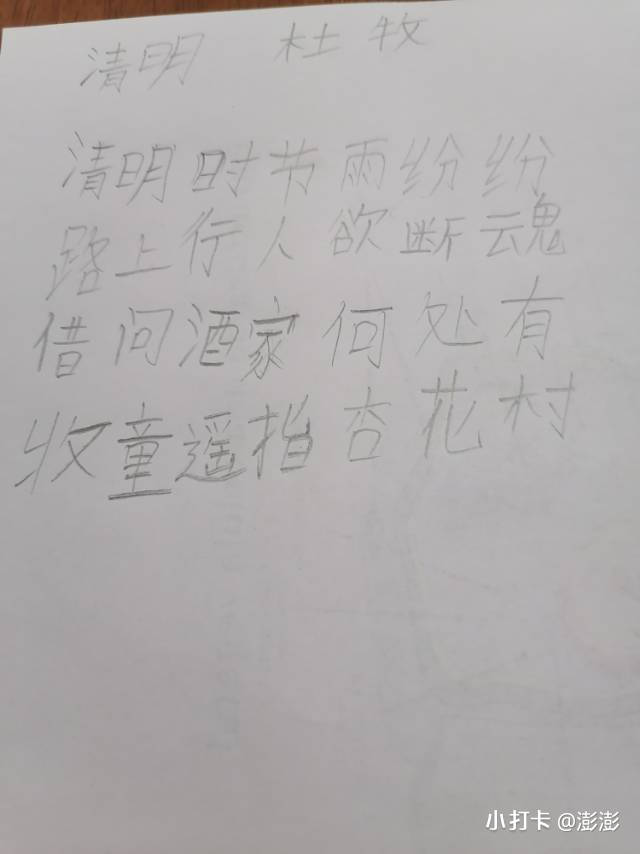 清明 杜牧
清明时节雨纷纷
路上行人欲断魂
借问酒家何处有
牧童遥指杏花村
小打卡 @澎澎